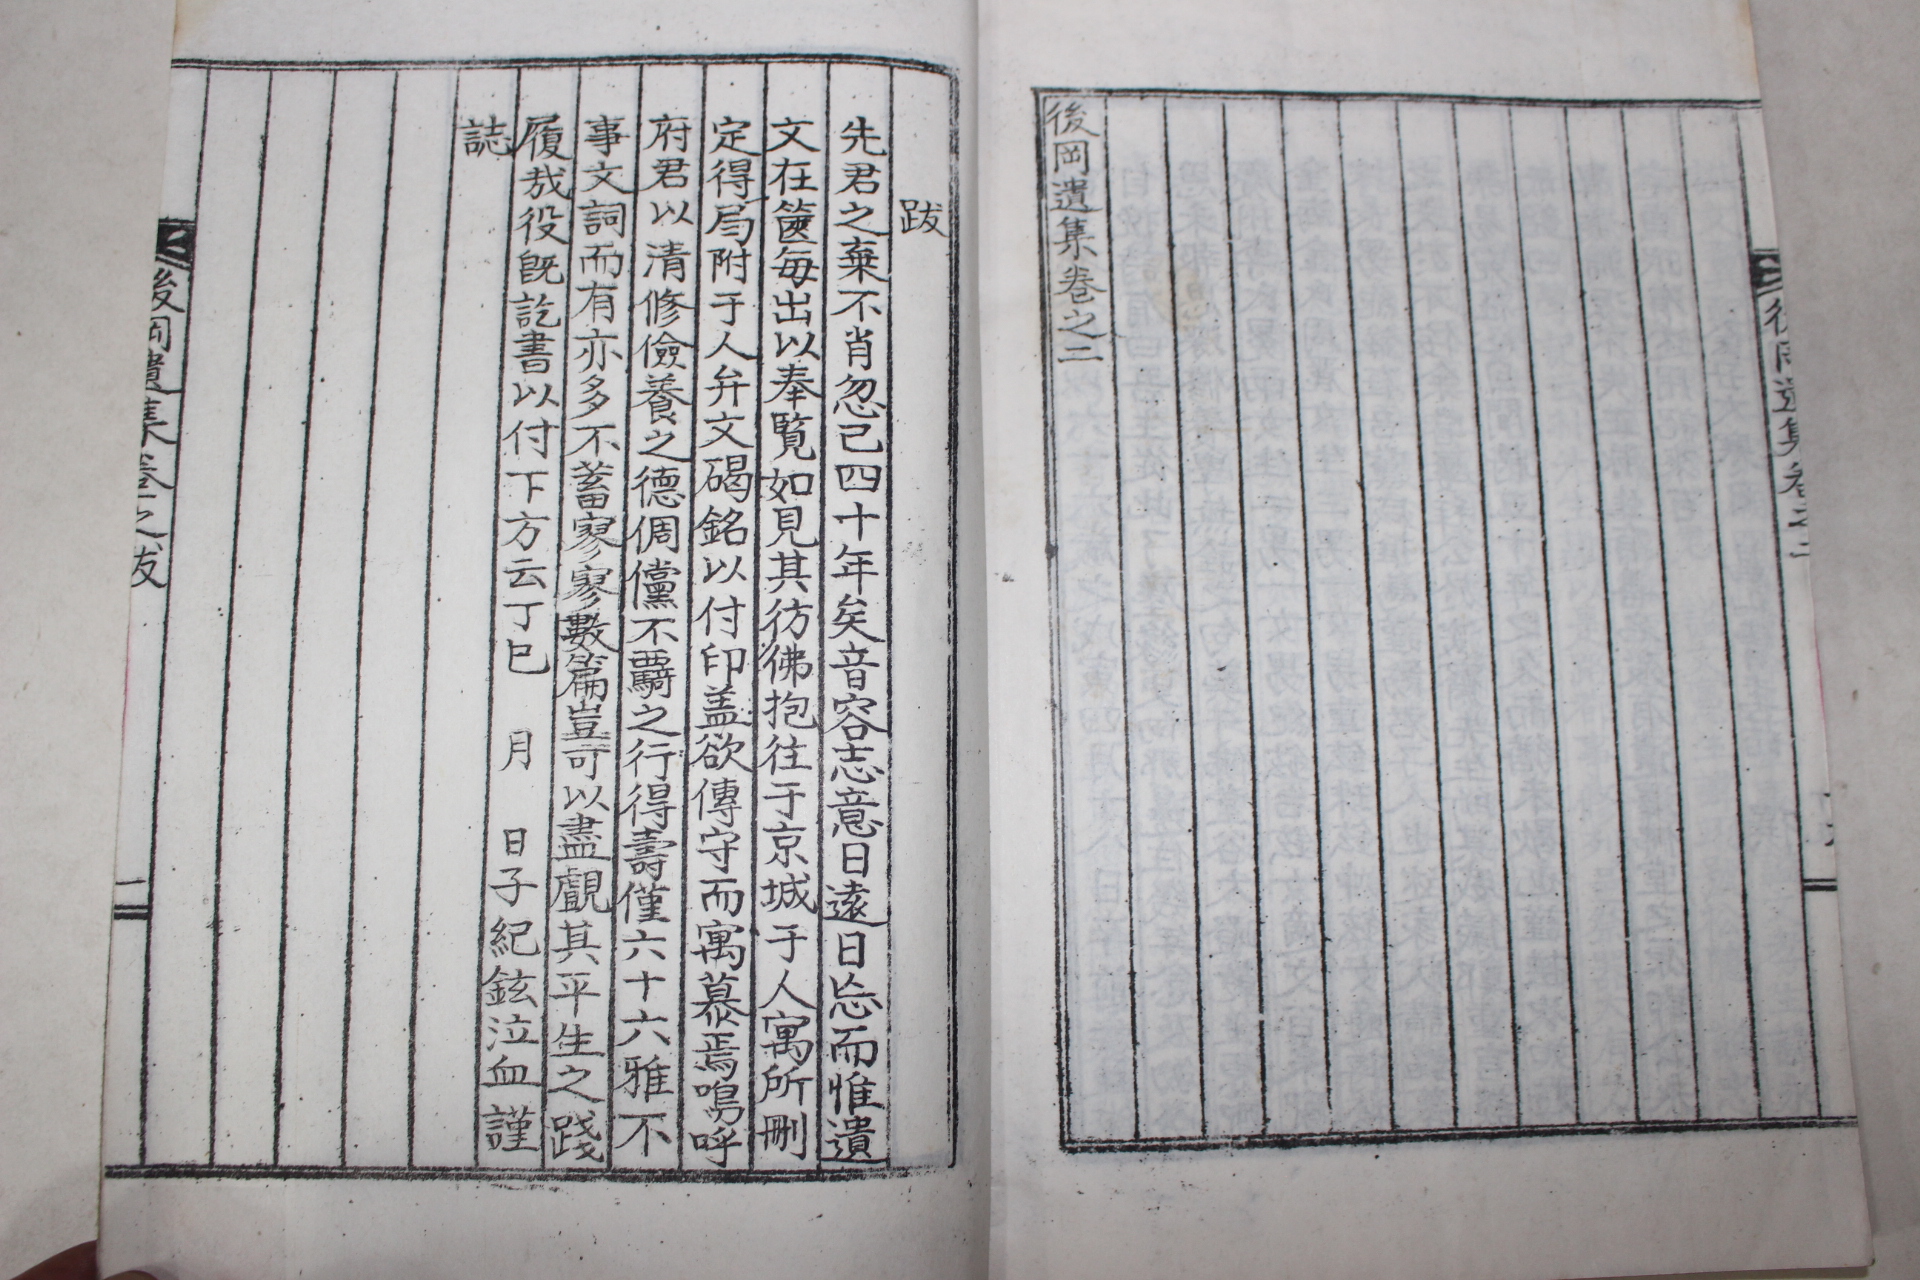 後岡遺集卷之二
後岡遺集卷之二
跋
先君之棄不肖忽已四十年矣音容志意日遠日忘而惟遺
文在篋每出以奉覧如見其彷彿抱往于京城于人寓所刪
定得局附于人弁文碣銘以付印盖欲傳守而寓慕焉嗚呼
府君以清修儉養之德倜儻不羈之行得壽僅六十六雅不
事文詞而有亦多不蓄寥寥數篇豈可以盡覰其平生之踐
履哉役旣訖書以付下方云丁巳 月 日子紀鉉泣血謹
誌
後岡遺集卷之跋
一